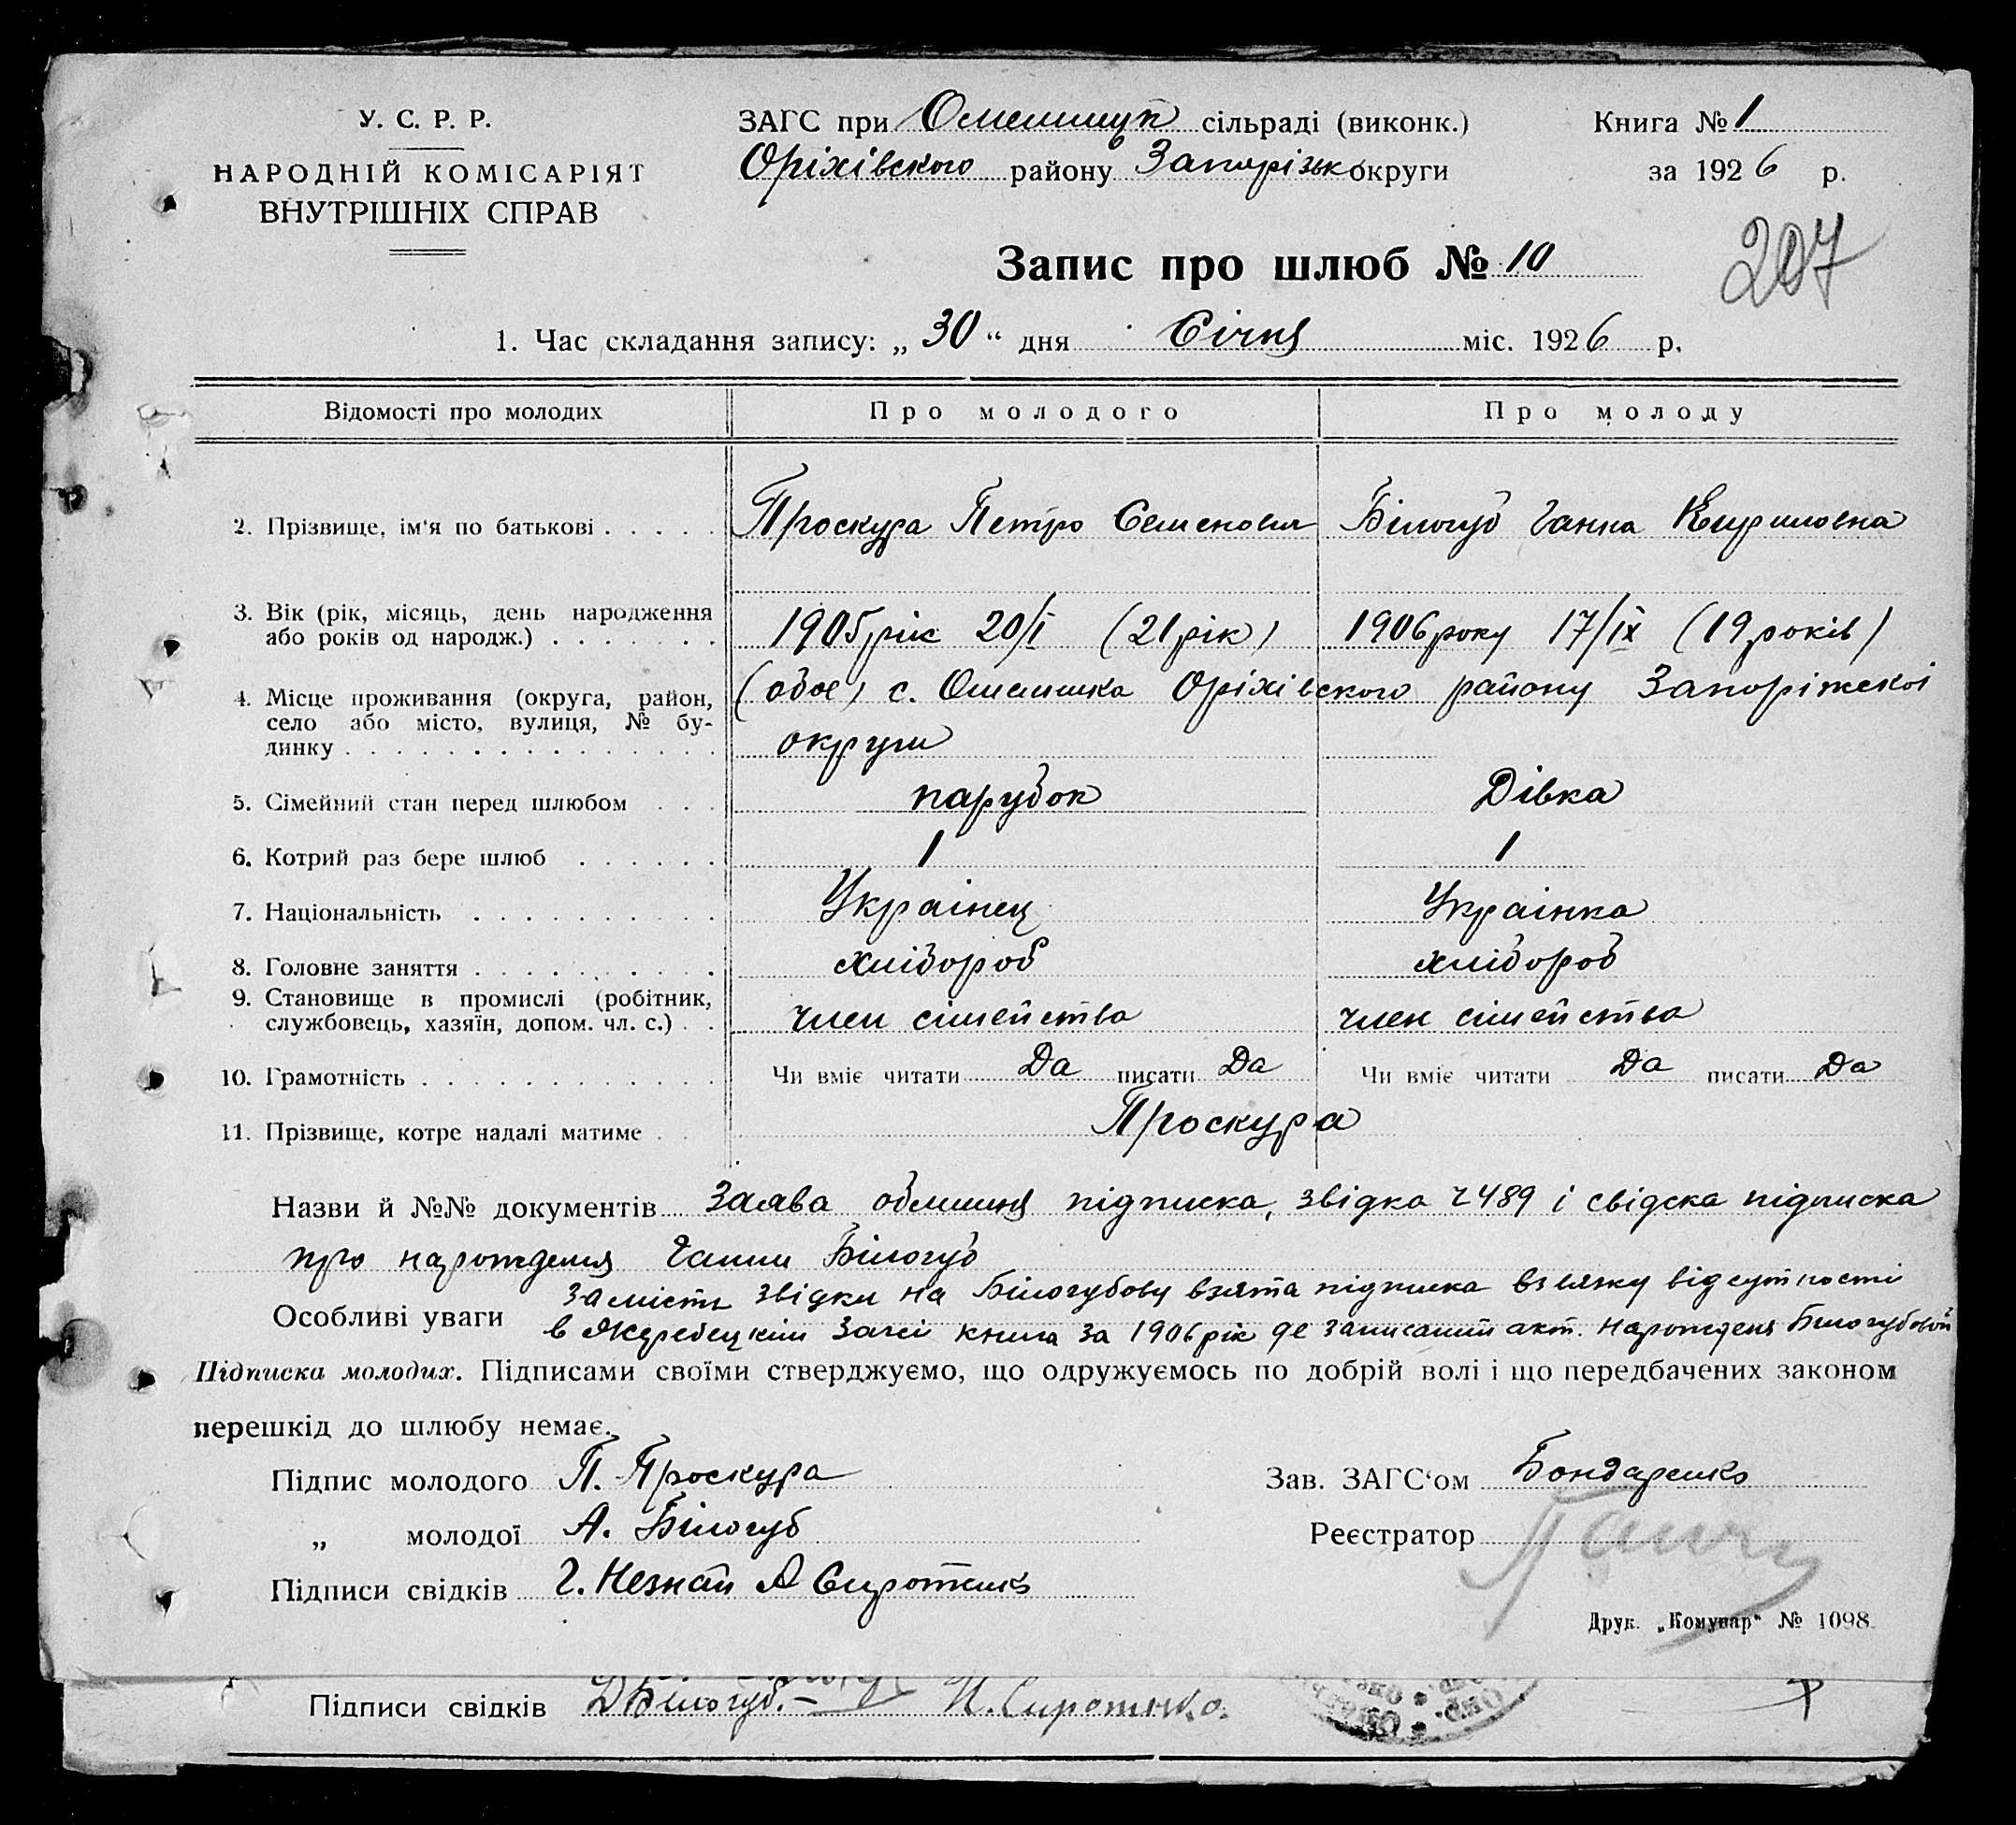 У. С. Р. Р.
НАРОДНІЙ КОМІСАРІЯТ
ВНУТРІШНІХ СПРАВ
ЗАГС при Омельницк сільраді (виконк.)
Оріхівского району Запорізьк округи
Книга № 1
за 1926 р.
Запис про шлюб № 10
207
1. Час складання запису: „ 30 “ дня Січня міс. 1926 р.
Відомості про молодих Про молодого Про молоду
2. Прізвище, ім'я по батькові . . . . . Проскура Петро Семенович Білогуб Ганна Кириловна
3. Вік (рік, місяць, день народження
або років од народж.) . . . . . . . 1905 рік 20/I (21 рік) 1906 року 17/IX (19 років)
4. Місце проживання (округа, район,
село або місто, вулиця, № бу-
динку . . . . . . . . . . . . . .
(обоє) с. Омельника Оріхівского району Запоріжскої
округи
5. Сімейний стан перед шлюбом . . . парубок Дівка
6. Котрий раз бере шлюб . . . . . . 1 1
7. Національність . . . . . . . . . . Українец Українка
8. Головне заняття . . . . . . . . . . хлібороб хлібороб
9. Становище в промислі (робітник,
службовець, хазяїн, допом. чл. с.) . . член сімейства член сімейства
10. Грамотність . . . . . . . . . . . . Чи вміє читати Да писати Да Чи вміє читати Да писати Да
11. Прізвище, котре надалі матиме . . Проскура
Назви й №№ документів Заява підписка, звідка 2489 і свідска підписка
про народженя Ганни Білогуб
Особливі уваги Замість звідки на Білогубову взята підписка взвязку відсутности
в Жеребецкім Загсі книги за 1906 рік де записаний акт. народженя Білогубовой
Підписка молодих. Підписами своїми стверджуємо, що одружуємось по добрій волі і що передбачених законом
перешкід до шлюбу немає.
Підпис молодого П. Проскура
„ молодої А. Білогуб
Підписи свідків Г. Незнай А Сиротенко
Зав. ЗАГС‘ом Бондаренко
Реєстратор
Друк. „Комунар“ № 1098
Підписи свідків Д Білогуб. – И. Сиротенко.